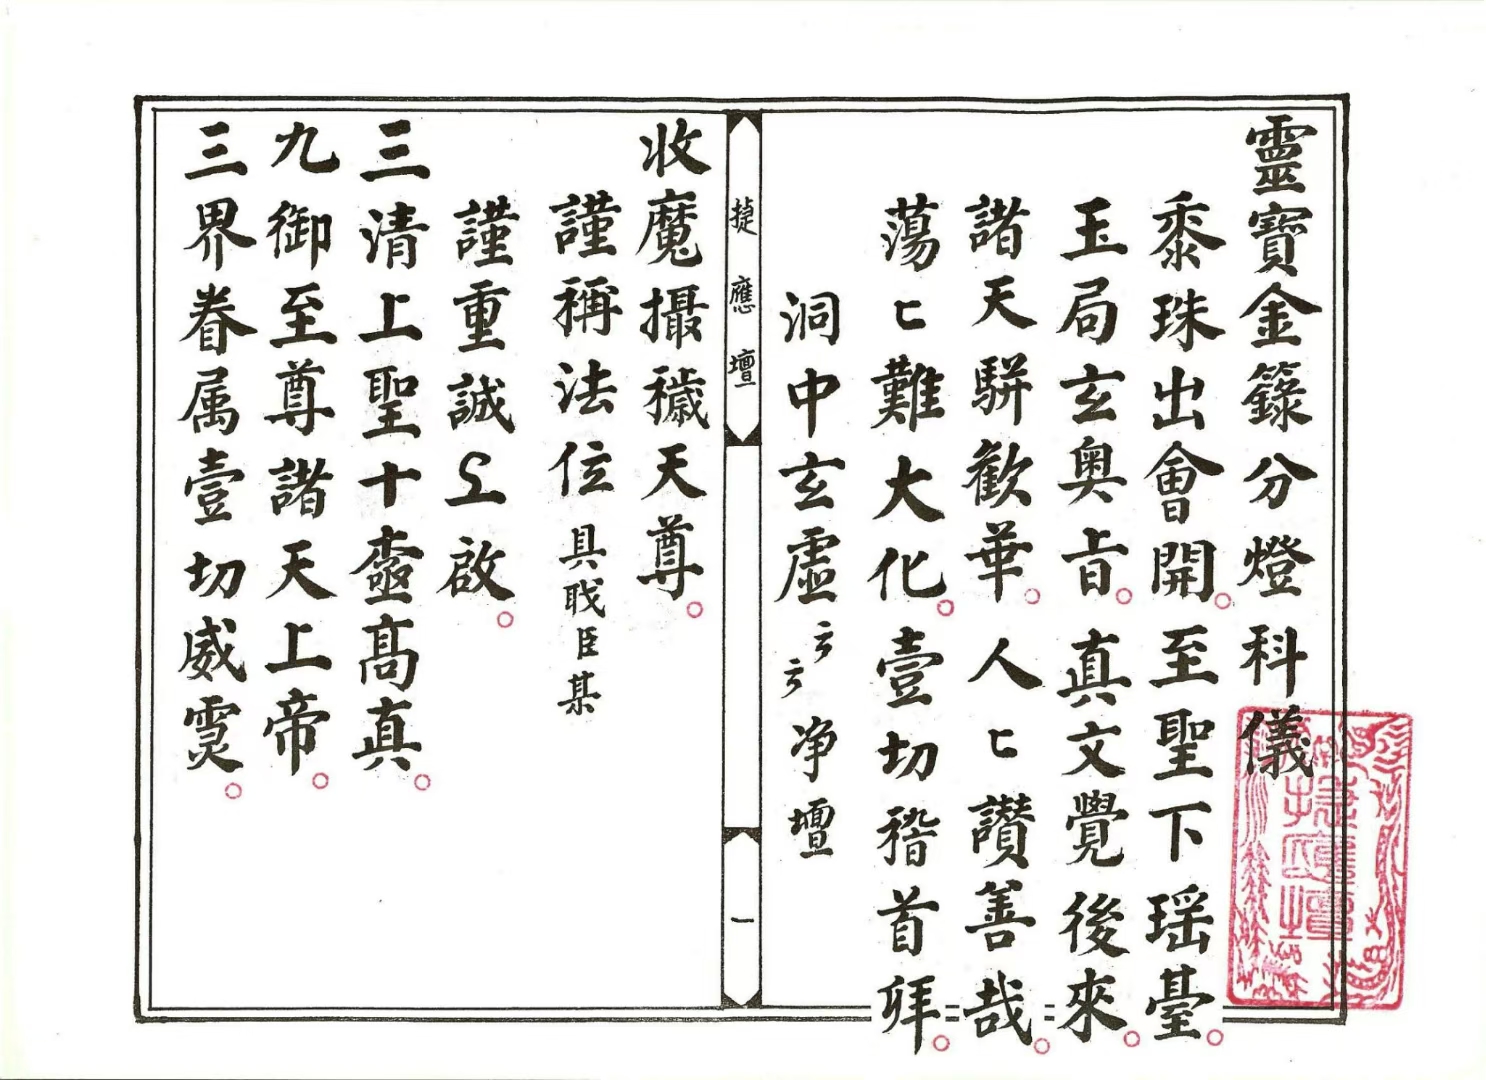 靈寶金籙分燈科儀
黍珠出會開至聖下瑶臺
玉局玄奥㫖真文覺後來
諸天駢歡華人匕讃善哉
蕩匕難大化壹切稽首拜
洞中玄虛云云净壇
捷應壇
一
收魔攝穢天尊
謹稱法位具戝臣某
謹重誠上啟
三清上聖十極高真
九御至尊諸天上帝
三界眷属壹切威霛
捷應壇